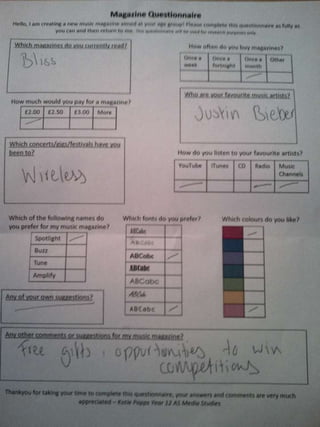 Magazine Questionnaire
Hello, I am creating a new music magazine aimed at your age group! Please complete this questionnaire as fully as
you can and then return to me. This questionnaire will be used for research purposes only.
Which magazines do you currently read?
Bliss
How often do you buy magazines?
Once a week Once a fortnight Once a month Other
How much would you pay for a magazine?
£2.00 £2.50 £3.00 More
Who are your favourite music artists?
Justin Bieber
Which concerts/gigs/festivals have you
been to?
Wireless
How do you listen to your favourite artists?
YouTube iTunes CD Radio Music Channels
Which of the following names do
you prefer for my music magazine?
Spotlight
Buzz
Tune
Amplify
Any of your own suggestions?
Which fonts do you prefer?
ABCabc
ABCabc
ABCabc
ABCabc
ABCabc
ABCab
ABCabc
Which colours do you like?
Any other comments or suggestions for my music magazine?
Free gifts, oppurtunities to win
competitions
Thankyou for taking your time to complete this questionnaire, your answers and comments are very much
appreciated – Katie Papps Year 12 AS Media Studies